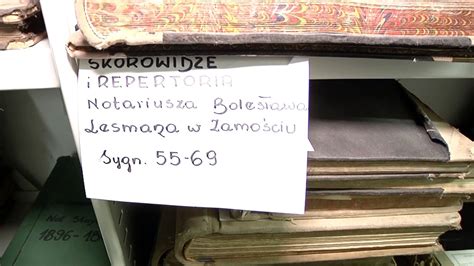 SKOROWIDZE
i REPERTORIA
Notariusza Bolesława
Lesmana w Zamościu
Sygn. 55-69
1896-1